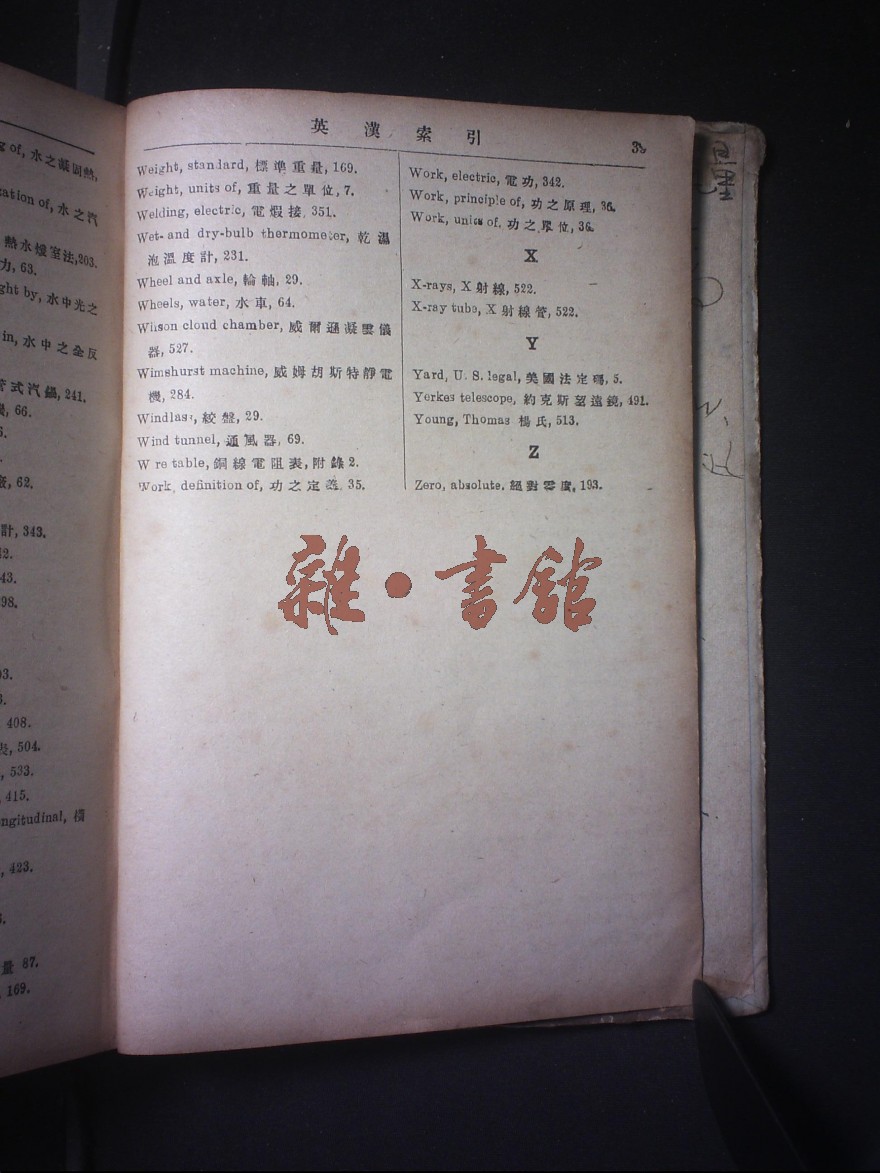 g of, 水之
ation of, 水之汽
熱水爐室法, 203.
力, 63.
ght by, 水中光之
in, 水中之全反
管式汽鍋, 241.
機, 66.
6.
廠, 62.
計, 343.
2.
43.
98.
93.
3.
408.
表, 504.
, 533.
, 415.
ngitudinal, 橫
, 423.
3.
量 87.
, 169.
英漢索引
Weight, standard, 標準重量, 169.
Weight, units of, 重量之單位, 7.
Welding, electric, 電煆接, 351.
Wet- and dry-bulb thermometer, 乾濕
泡溫度計, 231.
Wheel and axle, 輪軸, 29.
Wheels, water, 水車, 64.
Wilson cloud chamber, 威爾遜凝雲儀
器, 527.
Wimshurst machine, 威姆胡斯特靜電
機, 284.
Windlass, 絞盤, 29.
Wind tunnel, 通風器, 69.
W re table, 銅線電阻表, 附錄 2.
Work, definition of, 功之定義, 35.
Work, electric, 電功, 342.
Work, principle of, 功之原理, 36.
Work, units of, 功之單位, 36.
X
X-rays, X 射線, 522.
X-ray tube, X 射線管, 522.
Y
Yard, U. S. legal, 美國法定碼, 5.
Yerkes telescope, 約克斯望遠鏡, 491.
Young, Thomas 楊氏, 513.
Z
Zero, absolute, 絕對零度, 193.
雜·書館